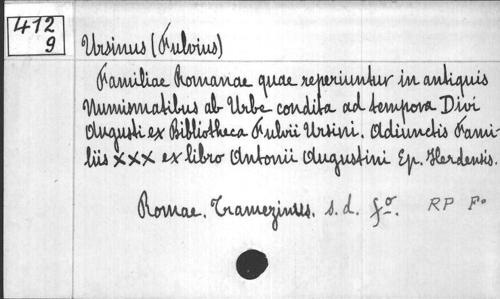 412
9
Ursinus (Fulvius)
Familiae Romanae quae reperiuntur in antiquis
Numismatibus ab Urbe condita ad tempora Divi
Augusti ex Bibliotheca Fulvii Ursini. Adiunctis Fami-
liis XXX ex libro Antonii Augustini Ep. Herdensis.
Romae. Tramezinus. s. d. fº. RP Fº